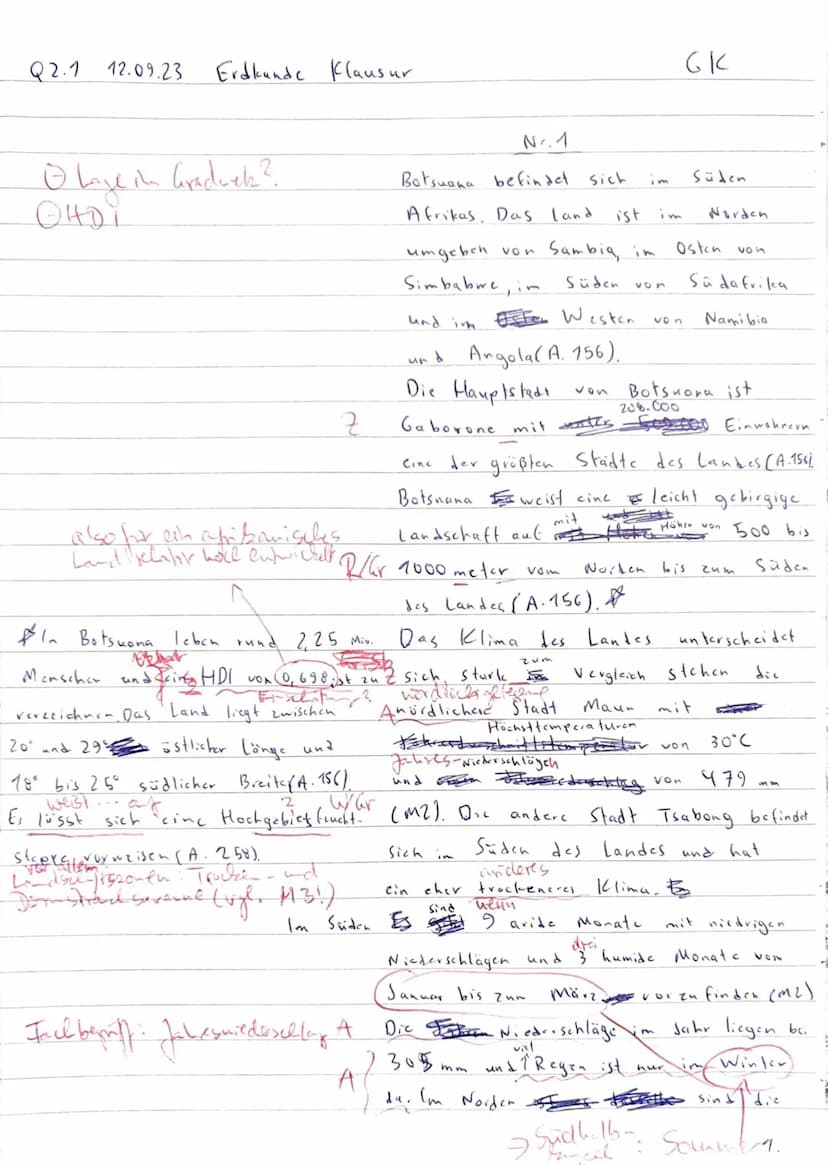 Q2.1 12.09.23 Erdkunde Klausur GK
Nr. 1
⊖ Lage im Gradnetz?
⊖ HDI
Botsuana befindet sich im Süden
Afrikas. Das Land ist im Norden
umgeben von Sambia, im Osten von
Simbabwe, im Süden von Südafrika
und im Westen von Namibia
und Angola (A. 156).
Die Hauptstadt von Botsuana ist
208.000
Z Gaborone mit Einwohnern
eine der größten Städte des Landes (A.156)
Botsuana weist eine leicht gebirgige
also für ein afrikanisches
Land relativ hoch entwickelt
Landschaft auf mit Höhen von 500 bis
R/Gr 1000 meter vom Norden bis zum Süden
des Landes (A. 156).
In Botsuana leben rund 2,25 Mio.
Menschen und ein HDI von 0,698 ist zu
verzeichnen. Das Land liegt zwischen
20° und 29° östlicher Länge und
18° bis 25° südlicher Breite (A. 156).
weist ... auf Z W/Gr
Es lässt sich eine Hochgebietfeucht-
steppe vorweisen (A. 258).
vor allem
Landschaftszonen: Trocken- und
Dornstrauchsavanne (vgl. M3!)
Das Klima des Landes unterscheidet
Z sich, stark zum Vergleich stehen die
nördlich gelegene
A nördlichere Stadt Maun mit
Höchsttemperaturen
von 30°C
Jahres-Niederschlägen
und von 479 mm
(M2). Die andere Stadt Tsabong befindet
sich im Süden des Landes und hat
arideres
ein eher trockeneres Klima.
neun
Im Süden sind 9 aride Monate mit niedrigen
drei
Niederschlägen und 3 humide Monate vom
Januar bis zum März vorzufinden (M2)
Fachbegriff: Jahresniederschlag A
Die Niederschläge im Jahr liegen bei
viel
305 mm und Regen ist nur im Winter
A da. Im Norden sind die
→ Südhalb-
kugel : Sommer
1.